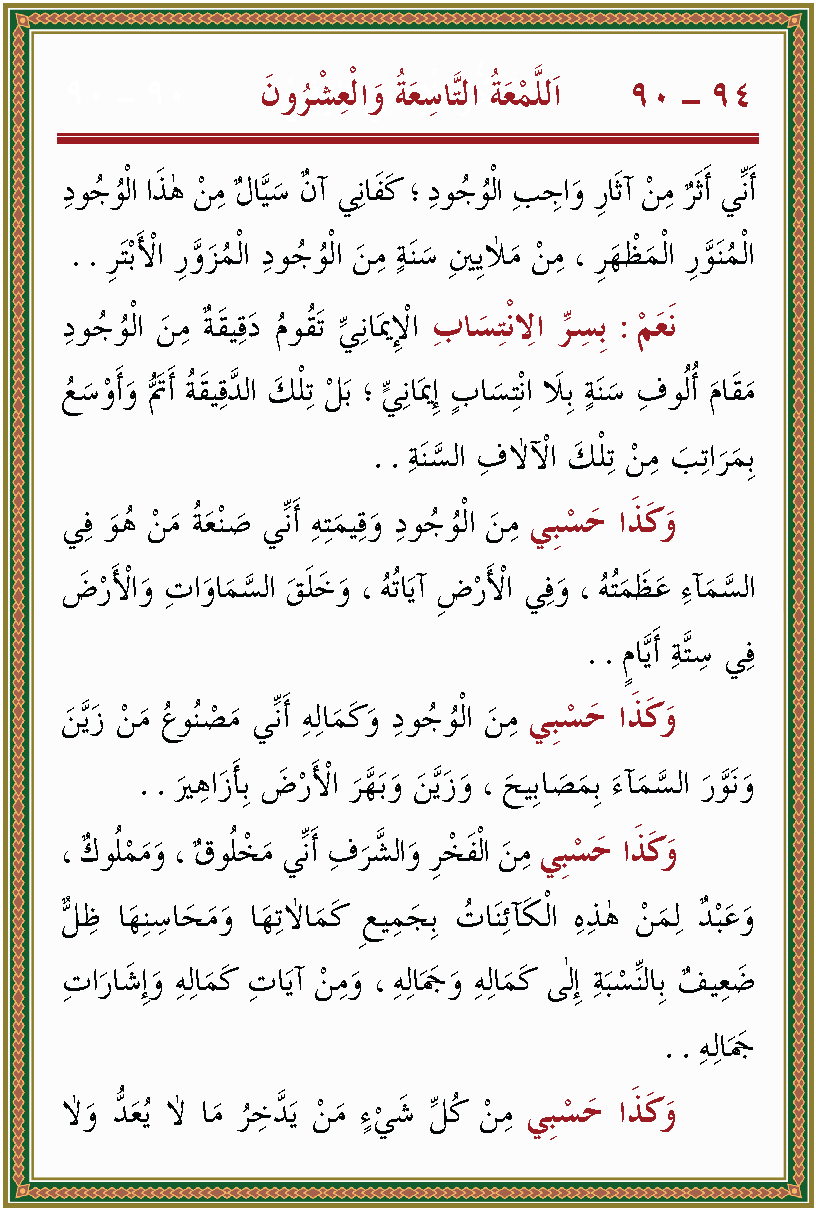 ٩٤ – ٩٠ اَللَّمْعَةُ التَّاسِعَةُ وَالْعِشْرُونَ
أَنِّي أَثَرٌ مِنْ آثَارِ وَاجِبِ الْوُجُودِ ؛ كَفَانِي آنٌ سَيَّالٌ مِنْ هٰذَا الْوُجُودِ
الْمُنَوَّرِ الْمَظْهَرِ ، مِنْ مَلاٰيِينِ سَنَةٍ مِنَ الْوُجُودِ الْمُزَوَّرِ الْأَبْتَرِ . .
نَعَمْ : بِسِرِّ الِانْتِسَابِ الْإِيمَانِيِّ تَقُومُ دَقِيقَةٌ مِنَ الْوُجُودِ
مَقَامَ أُلُوفِ سَنَةٍ بِلَا انْتِسَابٍ إِيمَانِيٍّ ؛ بَلْ تِلْكَ الدَّقِيقَةُ أَتَمُّ وَأَوْسَعُ
بِمَرَاتِبَ مِنْ تِلْكَ الْآلاٰفِ السَّنَةِ . .
وَكَذَا حَسْبِي مِنَ الْوُجُودِ وَقِيمَتِهِ أَنِّي صَنْعَةُ مَنْ هُوَ فِي
السَّمَآءِ عَظَمَتُهُ ، وَفِي الْأَرْضِ آيَاتُهُ ، وَخَلَقَ السَّمَاوَاتِ وَالْأَرْضَ
فِي سِتَّةِ أَيَّامٍ . .
وَكَذَا حَسْبِي مِنَ الْوُجُودِ وَكَمَالِهِ أَنِّي مَصْنُوعُ مَنْ زَيَّنَ
وَنَوَّرَ السَّمَآءَ بِمَصَابِيحَ ، وَزَيَّنَ وَبَهَّرَ الْأَرْضَ بِأَزَاهِيرَ . .
وَكَذَا حَسْبِي مِنَ الْفَخْرِ وَالشَّرَفِ أَنِّي مَخْلُوقٌ ، وَمَمْلُوكٌ ،
وَعَبْدٌ لِمَنْ هٰذِهِ الْكَآئِنَاتُ بِجَمِيعِ كَمَالاٰتِهَا وَمَحَاسِنِهَا ظِلٌّ
ضَعِيفٌ بِالنِّسْبَةِ إِلٰى كَمَالِهِ وَجَمَالِهِ ، وَمِنْ آيَاتِ كَمَالِهِ وَإِشَارَاتِ
جَمَالِهِ . .
وَكَذَا حَسْبِي مِنْ كُلِّ شَيْءٍ مَنْ يَدَّخِرُ مَا لاٰ يُعَدُّ وَلاٰ